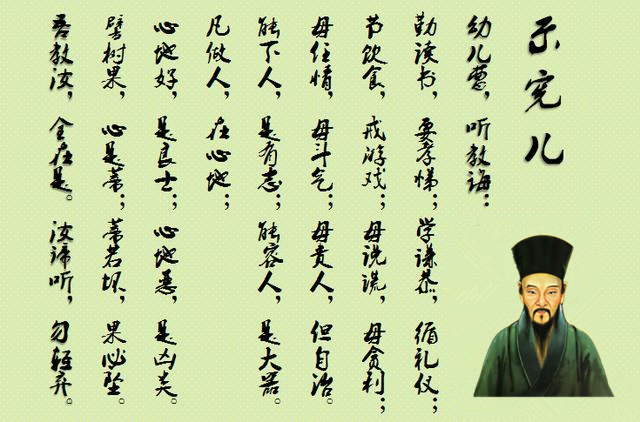 示宪儿
幼儿曹，听教诲：
勤读书，要孝悌；学谦恭，循礼仪；
节饮食，戒游戏；毋说谎，毋贪利；
毋任情，毋斗气；毋责人，但自治。
能下人，是有志；能容人，是大器。
凡做人，在心地；
心地好，是良士；心地恶，是凶类。
譬树果，心是蒂；蒂若坏，果必坠。
吾教汝，全在是。汝谛听，勿轻弃。